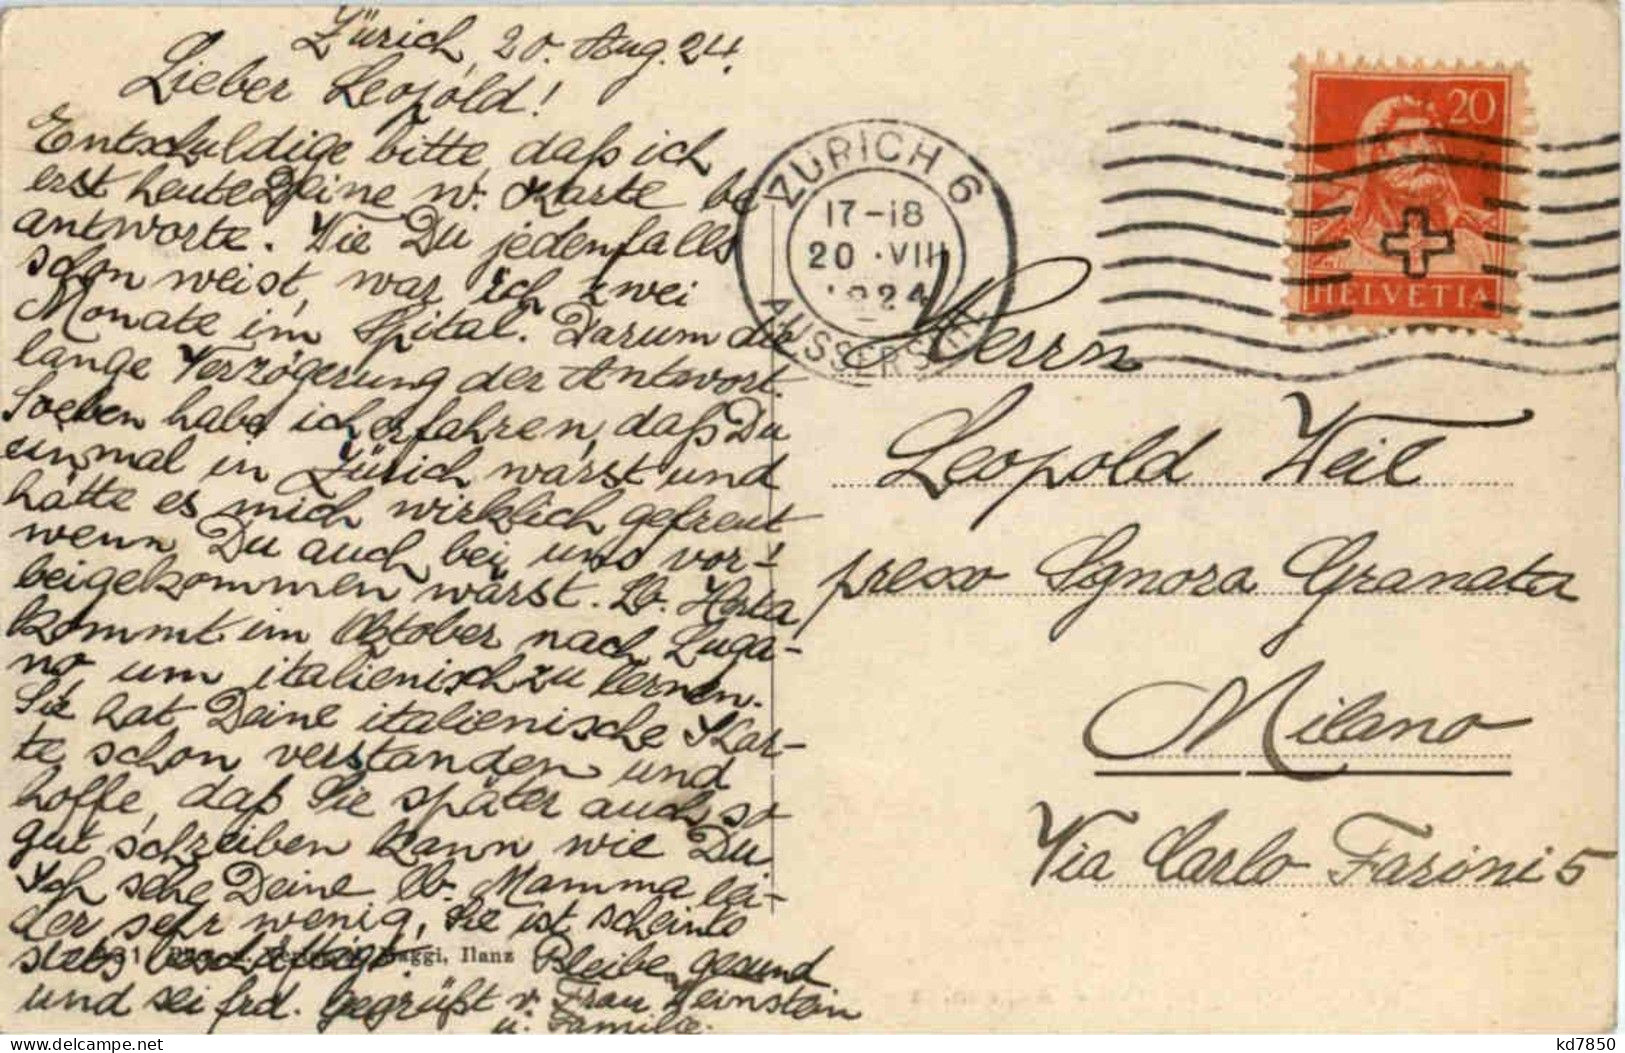 Zürich, 20. Aug. 24.
Lieber Leopold!
Entschuldige bitte daß ich
erst heute Deine w. Karte be
antworte. Wie Du jedenfalls
schon weist, war ich zwei
Monate im Spital. Darum die
lange Verzögerung der Antwort.
Soeben habe ich erfahren, daß Du
einmal in Zürich warst und
hätte es mich wirklich gefreut
wenn Du auch bei uns vor-
beigekommen wärst. Lb. Herta
kommt im Oktober nach Luga-
no um italienisch zu lernen.
Sie hat Deine italienische Kar-
te schon verstanden und
hoffe, daß Sie später auch so
gut schreiben kann wie Du
Ich sehe Deine lb. Mamma lei-
der sehr wenig, Sie ist scheints
stets beschäftigt. Bleibe gesund
und sei frd. gegrüßt v. Frau Weinstein
u. Familie.
31 Maggi, Ilanz
ZÜRICH 6
17-18
20.VIII
1924
AUSSERSIHL
20
HELVETIA
Herrn
Leopold Weil
presso Signora Granata
Milano
Via Carlo Farini 5
kd7850